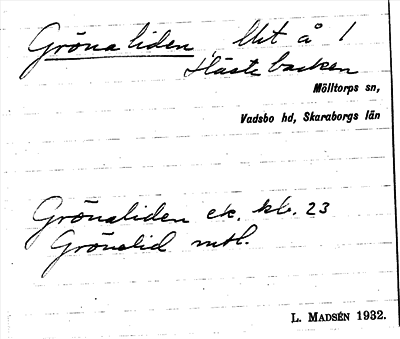 Grönaliden, Utt å 1
Hästebacken
Mölltorps sn,
Vadsbo hd, Skaraborgs län
Grönaliden ek. kb. 23
Grönelid mtl.
L. MADSÉN 1932.